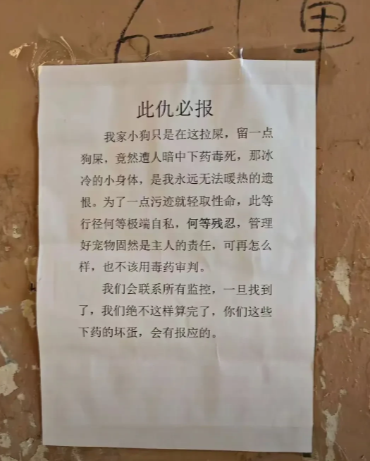 6-1单
此仇必报
我家小狗只是在这拉屎，留一点
狗屎，竟然遭人暗中下药毒死，那冰
冷的小身体，是我永远无法暖热的遗
恨。为了一点污迹就轻取性命，此等
行径何等极端自私，何等残忍，管理
好宠物固然是主人的责任，可再怎么
样，也不该用毒药审判。
我们会联系所有监控，一旦找到
了，我们绝不这样算完了，你们这些
下药的坏蛋，会有报应的。